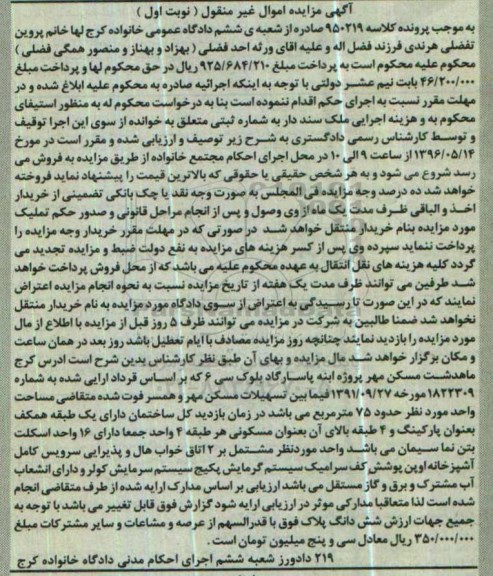 آگهی مزایده اموال غیر منقول ( نوبت اول )
به موجب پرونده کلاسه ۹۵۰۲۱۹ صادره از شعبه ی ششم دادگاه عمومی خانواده کرج لها خانم پروین
تفضلی هرندی فرزند فضل اله و علیه اقای ورثه احد فضلی ( بهزاد و بهناز و منصور همگی فضلی )
محکوم علیه محکوم است به پرداخت مبلغ ۹۲۵/۶۸۴/۲۱۰ ریال در حق محکوم لها و پرداخت مبلغ
۴۶/۲۰۰/۰۰۰ بابت نیم عشر دولتی با توجه به اینکه اجرائیه صادره به محکوم علیه ابلاغ شده و در
مهلت مقرر نسبت به اجرای حکم اقدام ننموده است بنا به درخواست محکوم له به منظور استیفای
محکوم به و هزینه اجرایی ملک سند دار به شماره ثبتی متعلق به خوانده از سوی این اجرا توقیف
و توسط کارشناس رسمی دادگستری به شرح زیر توصیف و ارزیابی شده و مقرر است در مورخ
۱۳۹۶/۰۵/۱۴ از ساعت ۹ الی ۱۰ در محل اجرای احکام مجتمع خانواده از طریق مزایده به فروش می
رسد شروع می شود و به هر شخص حقیقی یا حقوقی که بالاترین قیمت را پیشنهاد نماید فروخته
خواهد شد ده درصد وجه مزایده فی المجلس به صورت وجه نقد یا چک بانکی تضمینی از خریدار
اخذ و الباقی ظرف مدت یک ماه از وی وصول و پس از انجام مراحل قانونی و صدور حکم تملیک
مورد مزایده بنام خریدار منتقل خواهد شد در صورتی که در مهلت مقرر خریدار وجه مزایده را
پرداخت ننماید سپرده وی پس از کسر هزینه های مزایده به نفع دولت ضبط و مزایده تجدید می
گردد کلیه هزینه های نقل انتقال به عهده محکوم علیه می باشد که از محل فروش پرداخت خواهد
شد طرفین می توانند ظرف مدت یک هفته از تاریخ مزایده نسبت به نحوه انجام مزایده اعتراض
نمایند که در این صورت تا رسیدگی به اعتراض از سوی دادگاه مورد مزایده به نام خریدار منتقل
نخواهد شد ضمنا طالبین به شرکت در مزایده می توانند ظرف ۵ روز قبل از مزایده با اطلاع از مال
مورد مزایده را بازدید نمایند چنانچه روز مزایده مصادف با ایام تعطیل باشد روز بعد در همان ساعت
و مکان برگزار خواهد شد مال مزایده و بهای آن طبق نظر کارشناس بدین شرح است ادرس کرج
ماهدشت مسکن مهر پروژه ابنه پاسارگاد بلوک سی ۶ که بر اساس قرداد ارایی شده به شماره
۱۸۲۲۳۰۹ مورخه ۱۳۹۱/۰۹/۲۷ فیما بین تسهیلات مسکن مهر و همسر فوت شده متقاضی مساحت
واحد مورد نظر حدود ۷۵ مترمربع می باشد در زمان بازدید کل ساختمان دارای یک طبقه همکف
بعنوان پارکینگ و ۴ طبقه بالای آن بعنوان مسکونی هر طبقه ۴ واحد جمعا دارای ۱۶ واحد اسکلت
بتن نما سیمان می باشد واحد موردنظر مشتمل بر ۲ اتاق خواب هال و پذیرایی سرویس کامل
آشپزخانه اوپن پوشش کف سرامیک سیستم گرمایش پکیج سیستم سرمایش کولر و دارای انشعاب
آب مشترک و برق و گاز مستقل می باشد ارزیابی بر اساس مدارک ارایه شده از طرف متقاضی انجام
شده است لذا متعاقبا مدارکی موثر در ارزیابی ارایه شود گزارش فوق قابل تغییر می باشد با توجه به
جمیع جهات ارزش شش دانگ پلاک فوق با قدرالسهم از عرصه و مشاعات و سایر مشترکات مبلغ
۳۵۰/۰۰۰/۰۰۰ ریال معادل سی و پنج میلیون تومان است .
۲۱۹ دادورز شعبه ششم اجرای احکام مدنی دادگاه خانواده کرج